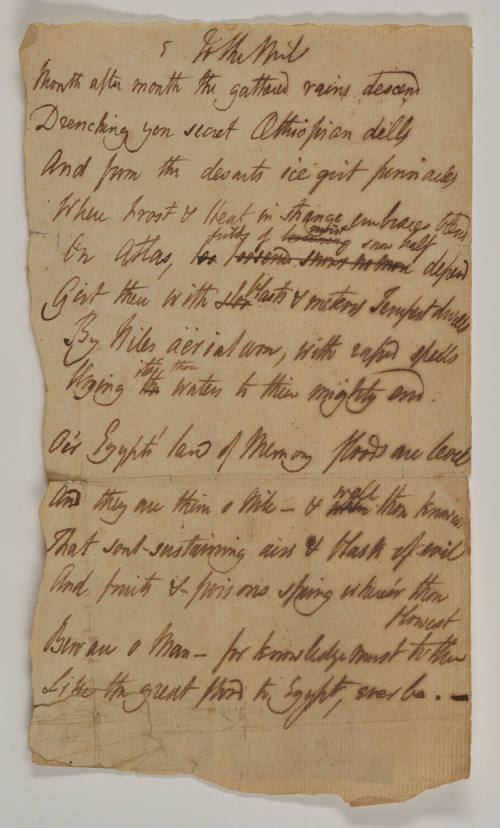 5 To the Nile
Month after month the gathered rains descend
Drenching yon secret Æthiopian dells
And from the desarts ice-girt pinnacles
Where Frost & Heat in strange embraces blend
On Atlas, fields of moist snow half depend
Girt there with blasts & meteors Tempest dwells
By Niles aërial urn, with rapid spells
Urging its waters to their mighty end.
O'er Egypts' land of Memory floods are level
And they are thine o Nile— & well thou knowest
That soul-sustaining airs & blasts of evil
And fruits & poisons spring where'er thou
flowest
Beware o Man— for knowledge must to thee
Like the great flood to Egypt, ever be.—